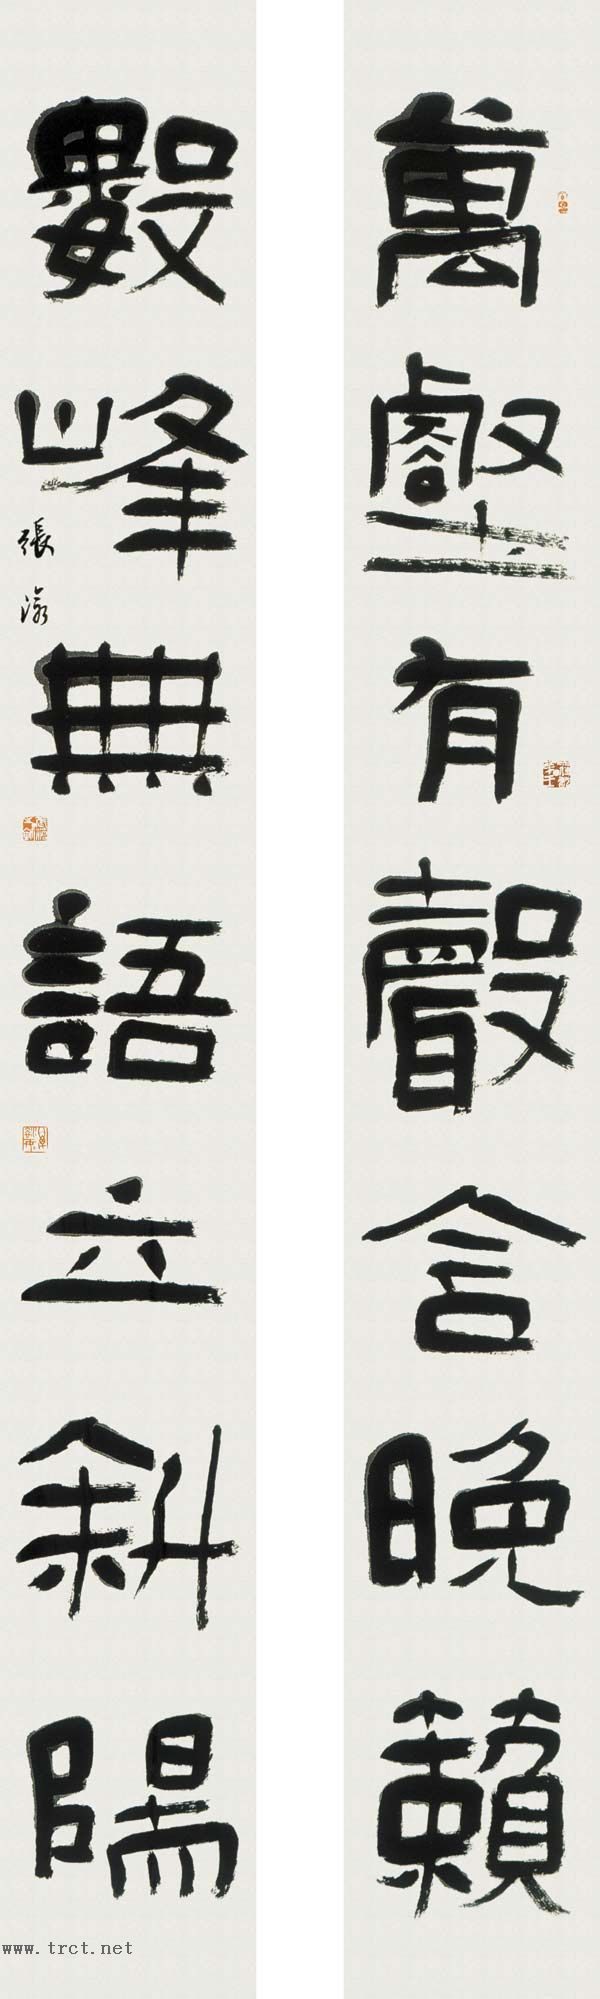 萬壑有聲含晚籟
數峰無語立斜陽
張瀛
www.trct.net